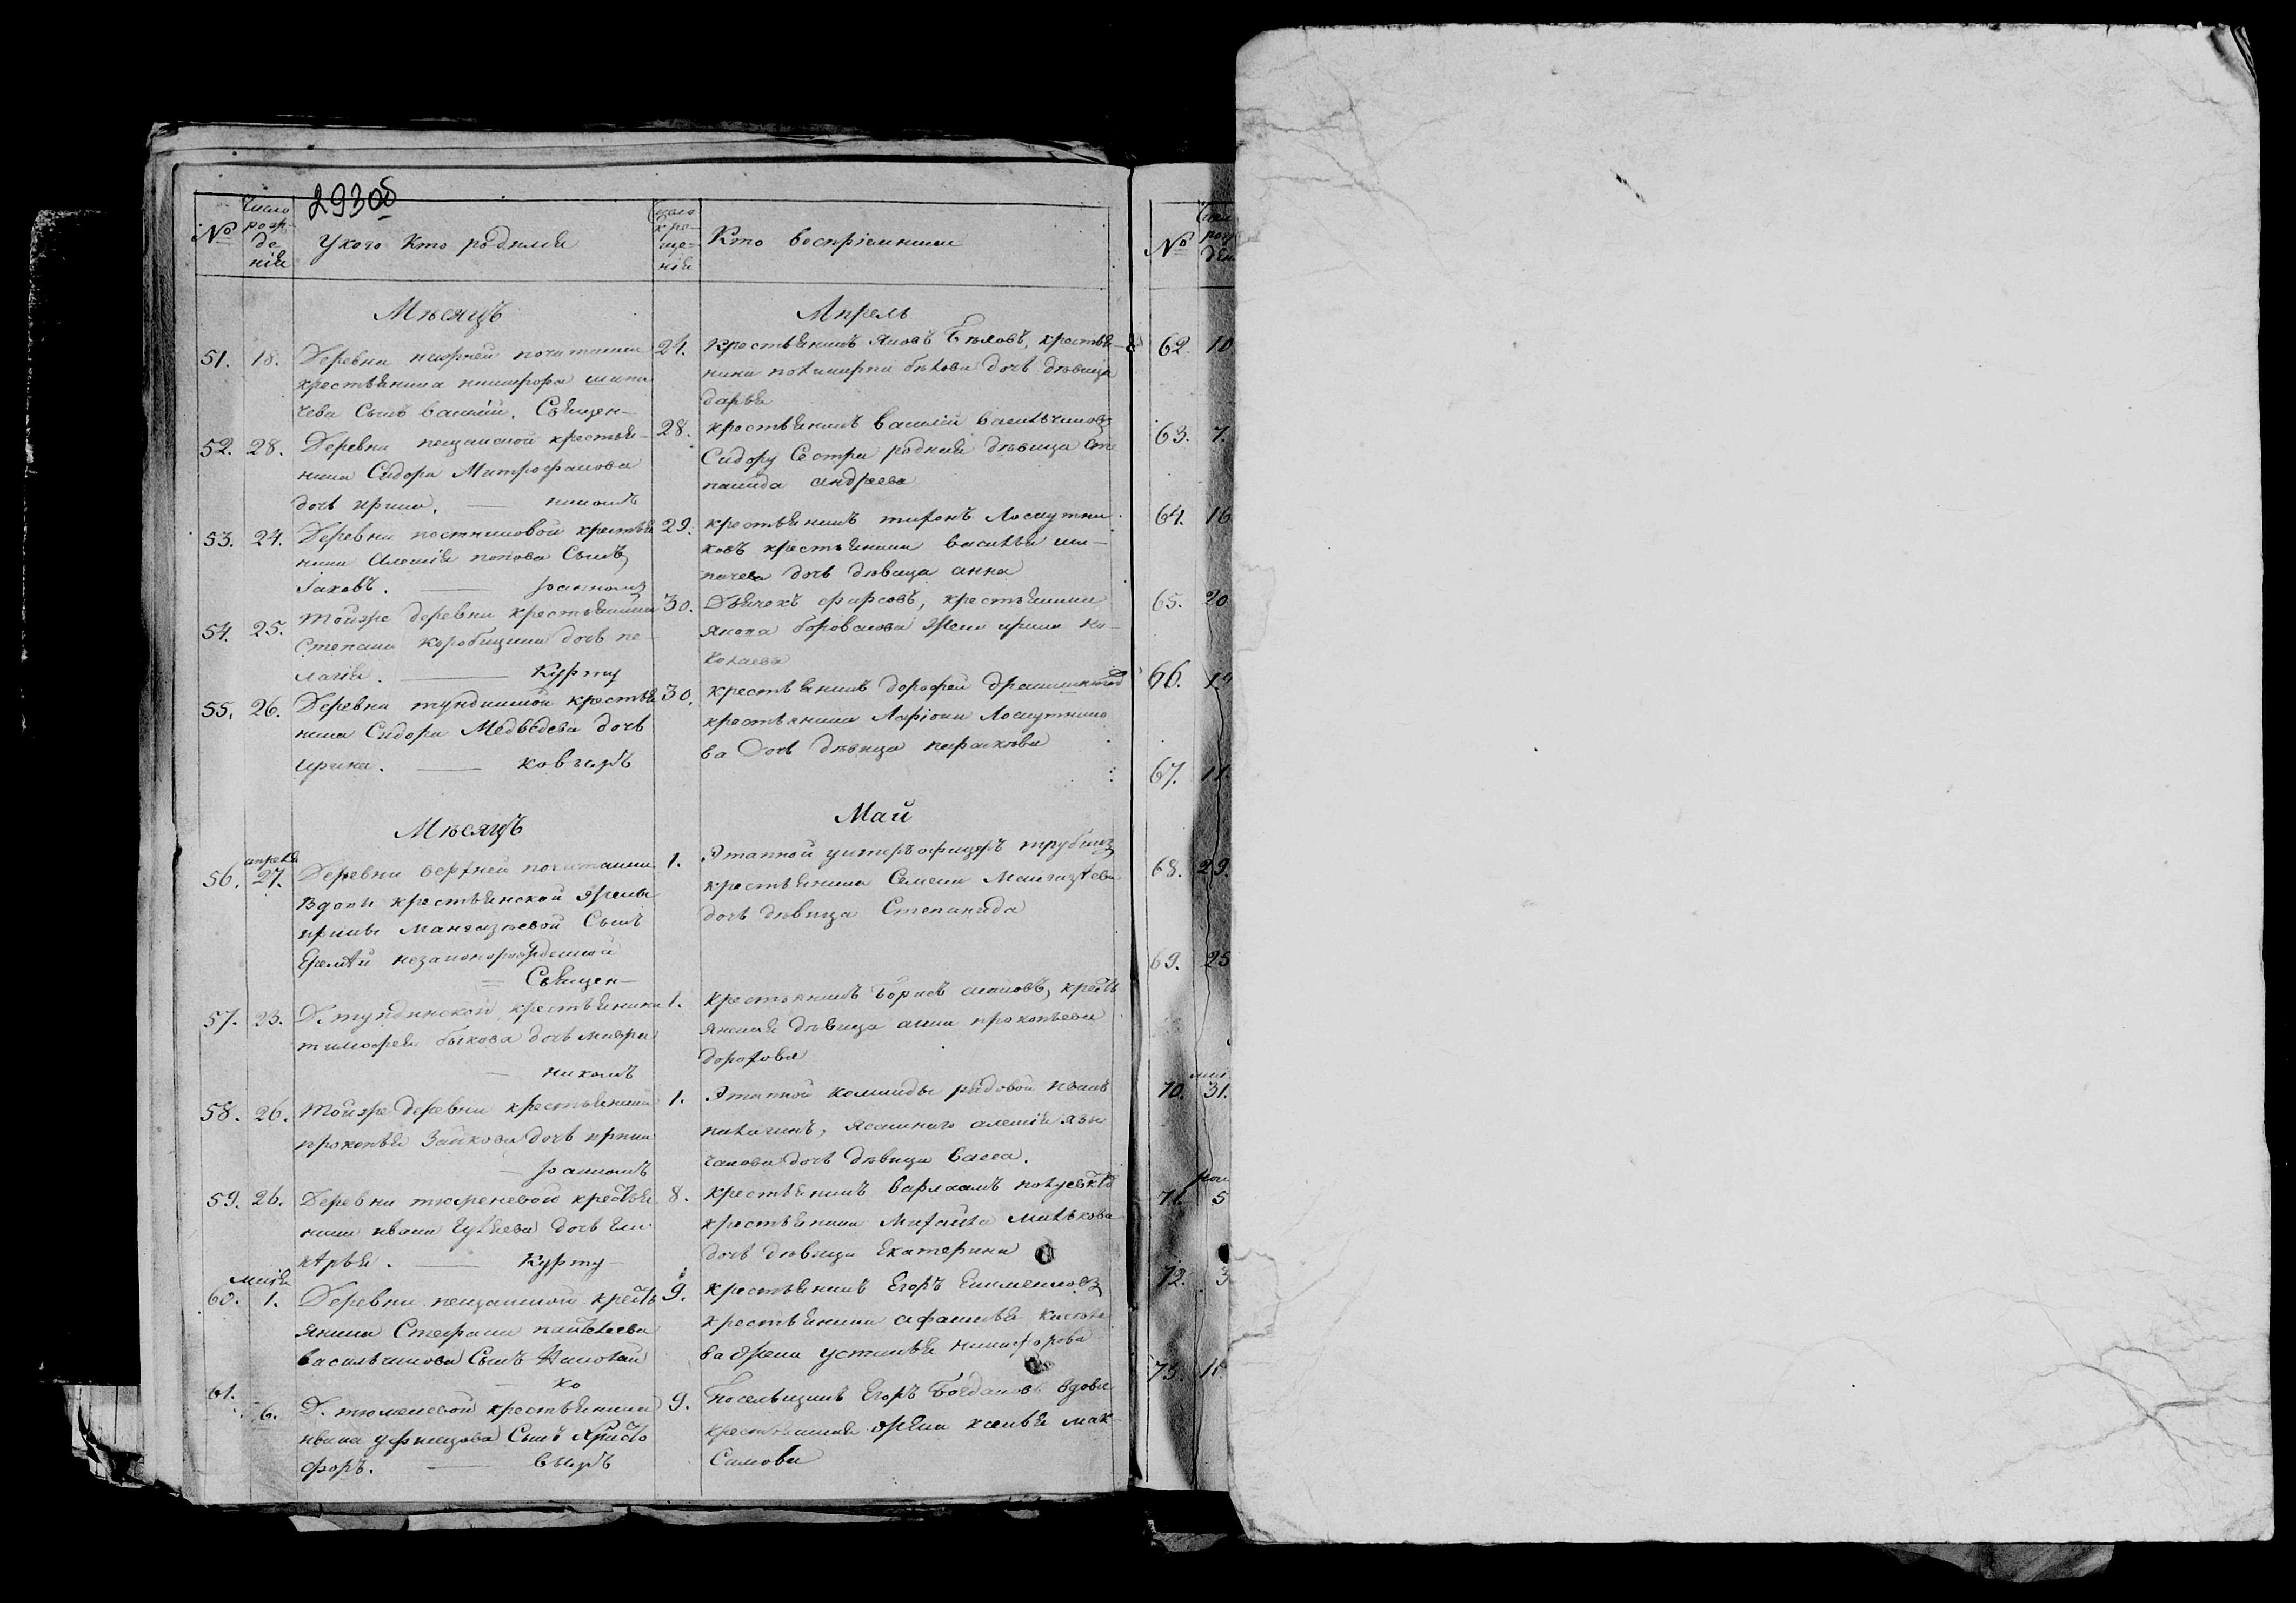 293об
№
Число рожденія
У кого кто родился
Число крещенія
Кто воспріемники
Мѣсяцъ Апрель
51. 18. Деревни нижней почитанки
крестьянина никифора шипи
чева Сынъ василій. Священ—
24. крестьянинъ Яковъ Бѣловъ, крестья—
нина поликарпа бѣлова дочь дѣвица
дарья
52. 28. Деревни пещанской крестья—
нина Сидора Митрофанова
дочь ирина. — никонъ
28. крестьянинъ василій васильчиковъ
Сидору Сестра родная дѣвица Сте
панида андреева
53. 24. Деревни постниковой крестья
нина Алексія попова Сынъ
Іаковъ.
29. крестьянинъ тихонъ Лоскутни
ковъ крестьянина василья ши—
пичева дочь дѣвица анна
54. 25. Тойже деревни крестьянина
Степана коробицина дочь пе—
лагія. — Курту
30. Дьячекъ фирсовъ, крестьянина
Якова боровкова жена ирина ни—
колаева
55. 26. Деревни тундинской крестья
нина Сидора Медведева дочь
ирина. —
30. крестьянинъ дорофей
крестьянина Ларіона Лоскутнико
ва дочь дѣвица параскева
Мѣсяцъ Май
56. апреля 27. Деревни верхней почитанки
Вдовы крестьянской жены
ирины Мангазѣевой Сынъ
Еремѣй незаконорожденной
— Священ—
1. Этапной унтеръ офицеръ трубинъ
крестьянина Семена Мангазѣева
дочь дѣвица Степанида
57. 23. Д. тундинской крестьянина
тимофея быкова дочь мавра
— никонъ
1. крестьянинъ борисъ крестъ
янская дѣвица анна прокопьева
дорохова
58. 26. Тойже деревни крестьянина
прокопья Зайкова дочь ирина
1. Этапной команды рядовой иванъ
палагинъ, ясашнаго алексія язы
чакова дочь дѣвица васса.
59. 26. Деревни тюменевой крестья
нина ивана гуляева дочь гли
кѣрья. — Курту—
8. крестьянинъ варлаамъ полуектъ
крестьянина Михаила милькова
дочь дѣвица екатерина
60. Маія 1. Деревни пещанской крестъ
янина Стефана пантелеева
васильчикова Сынъ Николай
— ко
9. крестьянинъ Егоръ Екименковъ
крестьянина афанасья киселе
ва жена устинья никифорова
61. 6. Д. тюменевой крестьянина
ивана уфинцова Сынъ Христо
форъ. —
9. Посельщикъ Егоръ Богдановъ вдова
крестьянская жена ксенья мак
Симова
№
62. 10
63. 7.
64. 16
65. 20
66.
67. 11.
68. 29.
69. 25
70. 31.
71. 5
72. 3
73.